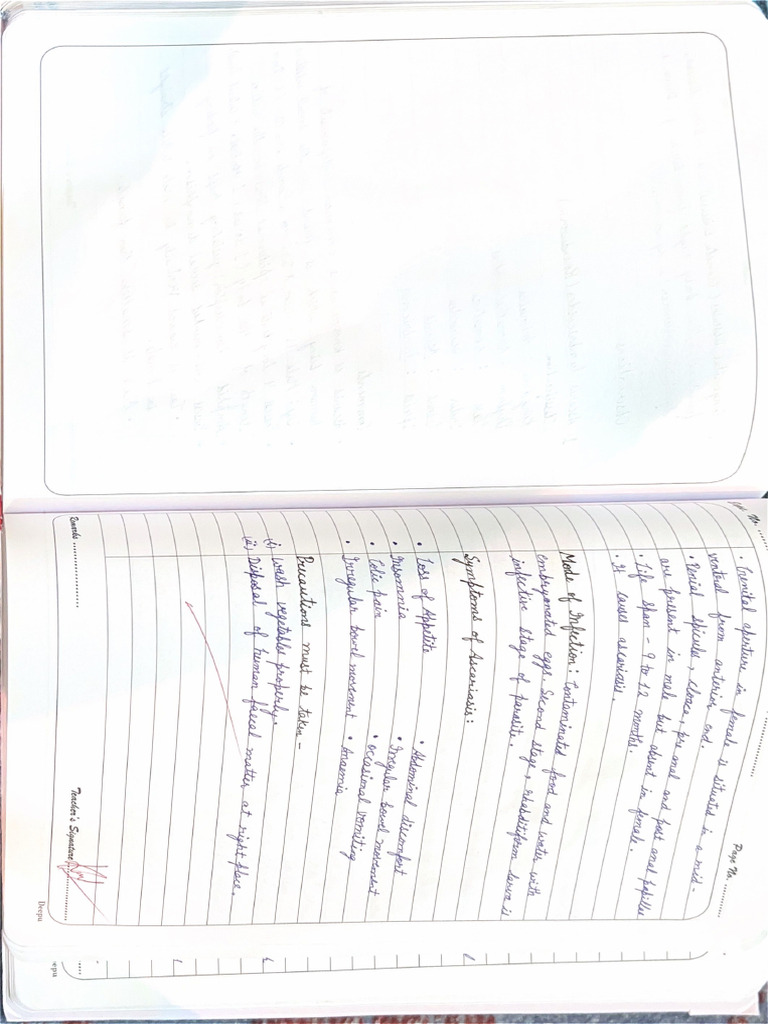 Expt. No. ............
Page No. ............
• Genital aperture in female is situated in a mid-
ventral from anterior end.
• Penial spicules, cloaca, pre anal and post anal papillae
are present in male but absent in female.
• Life span - 9 to 12 months.
• It causes ascariasis.
Mode of Infection: Contaminated food and water with
embryonated eggs. Second stage, rhabditiform larva is
infective stage of parasite.
Symptoms of Ascariasis:
• Loss of Appetite • Abdominal discomfort
• Insomnia • Irregular bowel movement
• Colic pain • occasional vomiting
• Irregular bowel movement • Anaemia
Precautions must be taken -
(i) Wash vegetables properly.
(ii) Disposal of human faecal matter at right place.
Remarks ............
Teacher's Signature ............
Deepu
epu